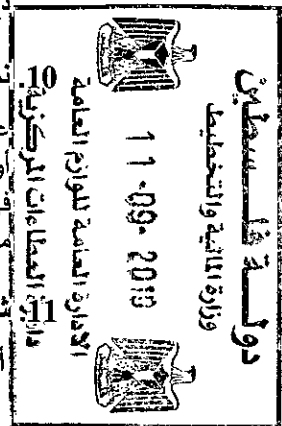 دولة فلسطين
وزارة المالية والتخطيط
11 -09- 2019
الادارة العامة للوازم العامة
دائرة العطاءات المركزية
10
11